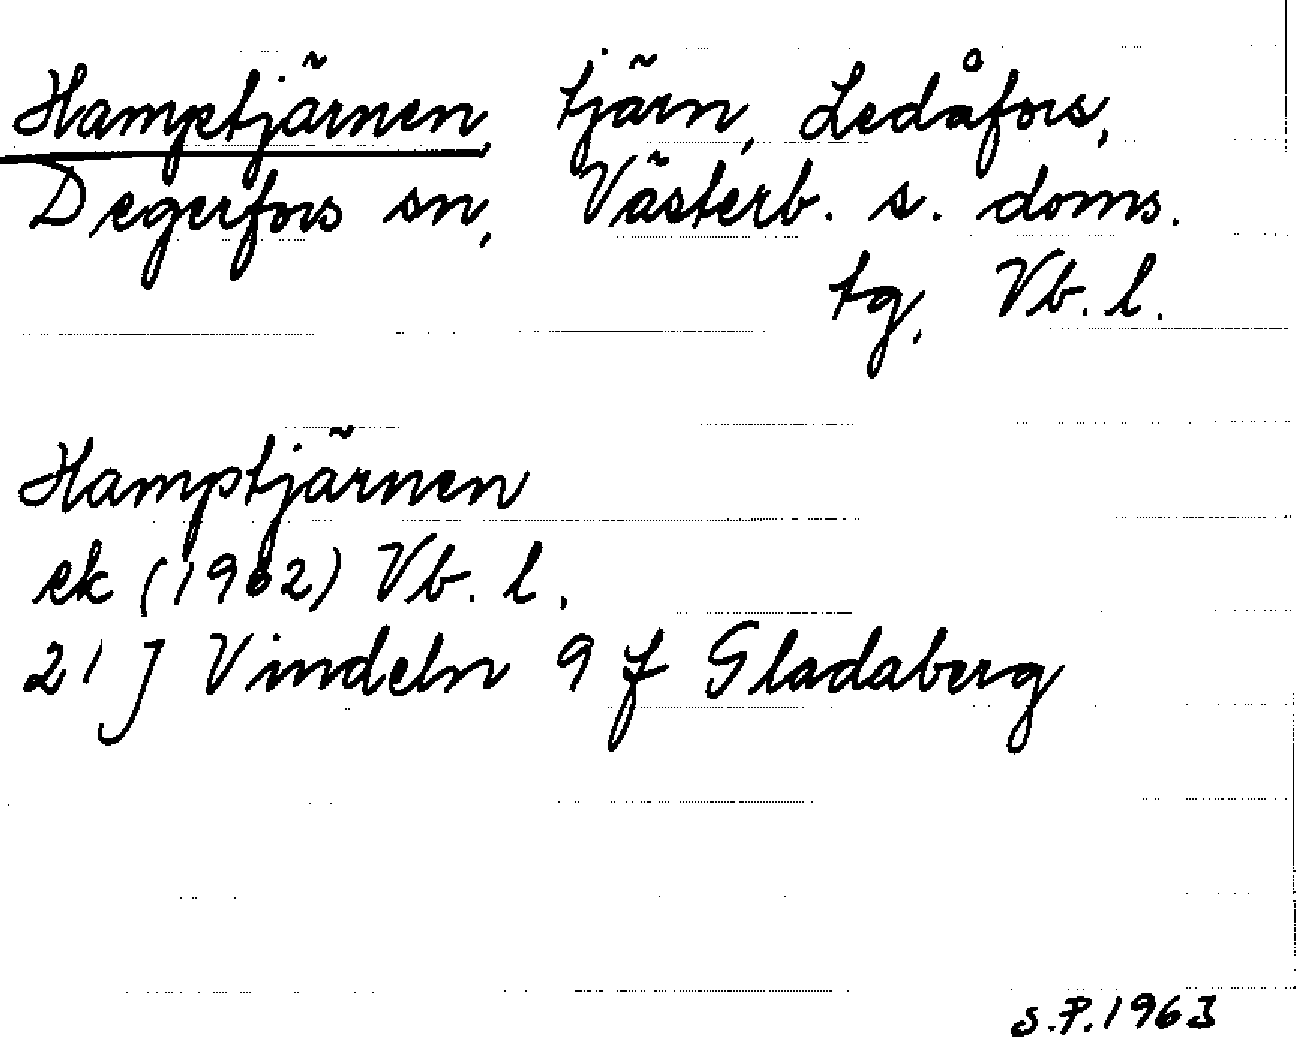 Hamptjärnen, tjärn, Ledåfors,
Degerfors sn, Västerb. s. doms.
tg, Vb. l.
Hamptjärnen
ek (1962) Vb. l.
21 J Vindeln 9 f Gladaberg
S.P. 1963